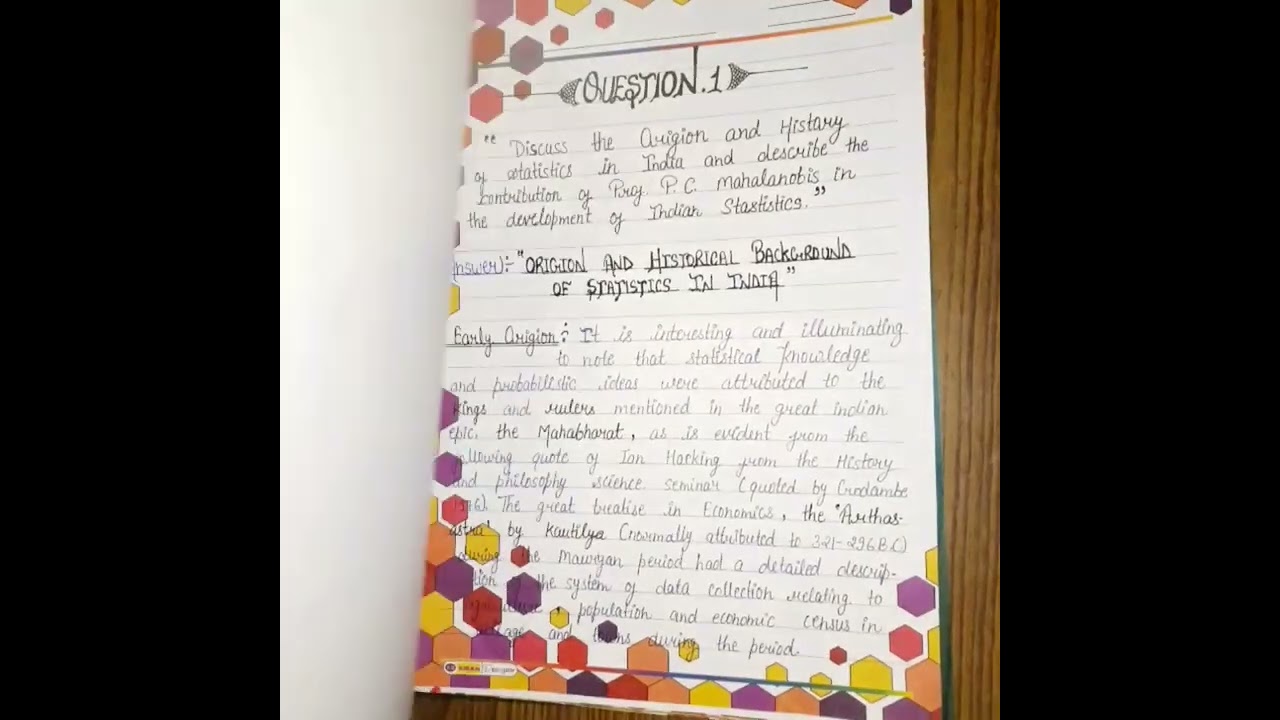 QUESTION.1
" Discuss the Origion and Histary
of statistics in India and describe the
contribution of Prof. P.C. Mahalanobis in
the development of Indian Stastistics."
Answer):- "ORIGION AND HISTORICAL BACKGROUND
OF STATISTICS IN INDIA"
Early Origion :- It is interesting and illuminating
to note that statistical knowledge
and probabilistic ideas were attributed to the
kings and rulers mentioned in the great indian
epic, the Mahabharat, as is evident from the
following quote of Ian Hacking from the History
and philosophy science seminar (quoted by Godambe
1976). The great treatise in Economics, the "Arthas-
astra" by Kautilya (normally attributed to 321-296B.C)
during the Mauryan period had a detailed descrip-
tion of the system of data collection relating to
agriculture, population and economic census in
villages and towns during the period.